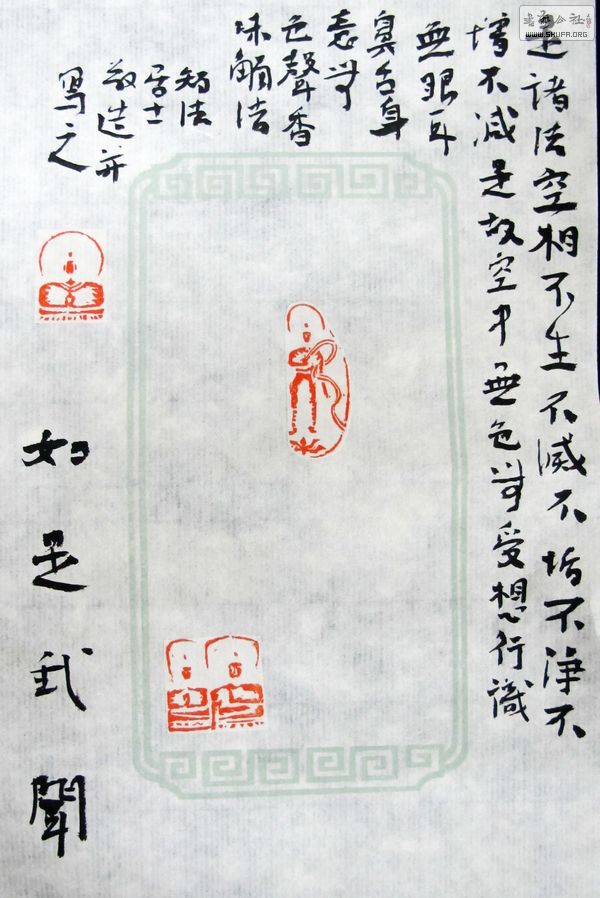 是諸法空相不生不滅不垢不淨不
增不減是故空中無色無受想行識
無眼耳
鼻舌身
意無
色聲香
味觸法
智法
居士
敬造并
寫之
如是我聞
书法公社
WWW.SHUFA.ORG